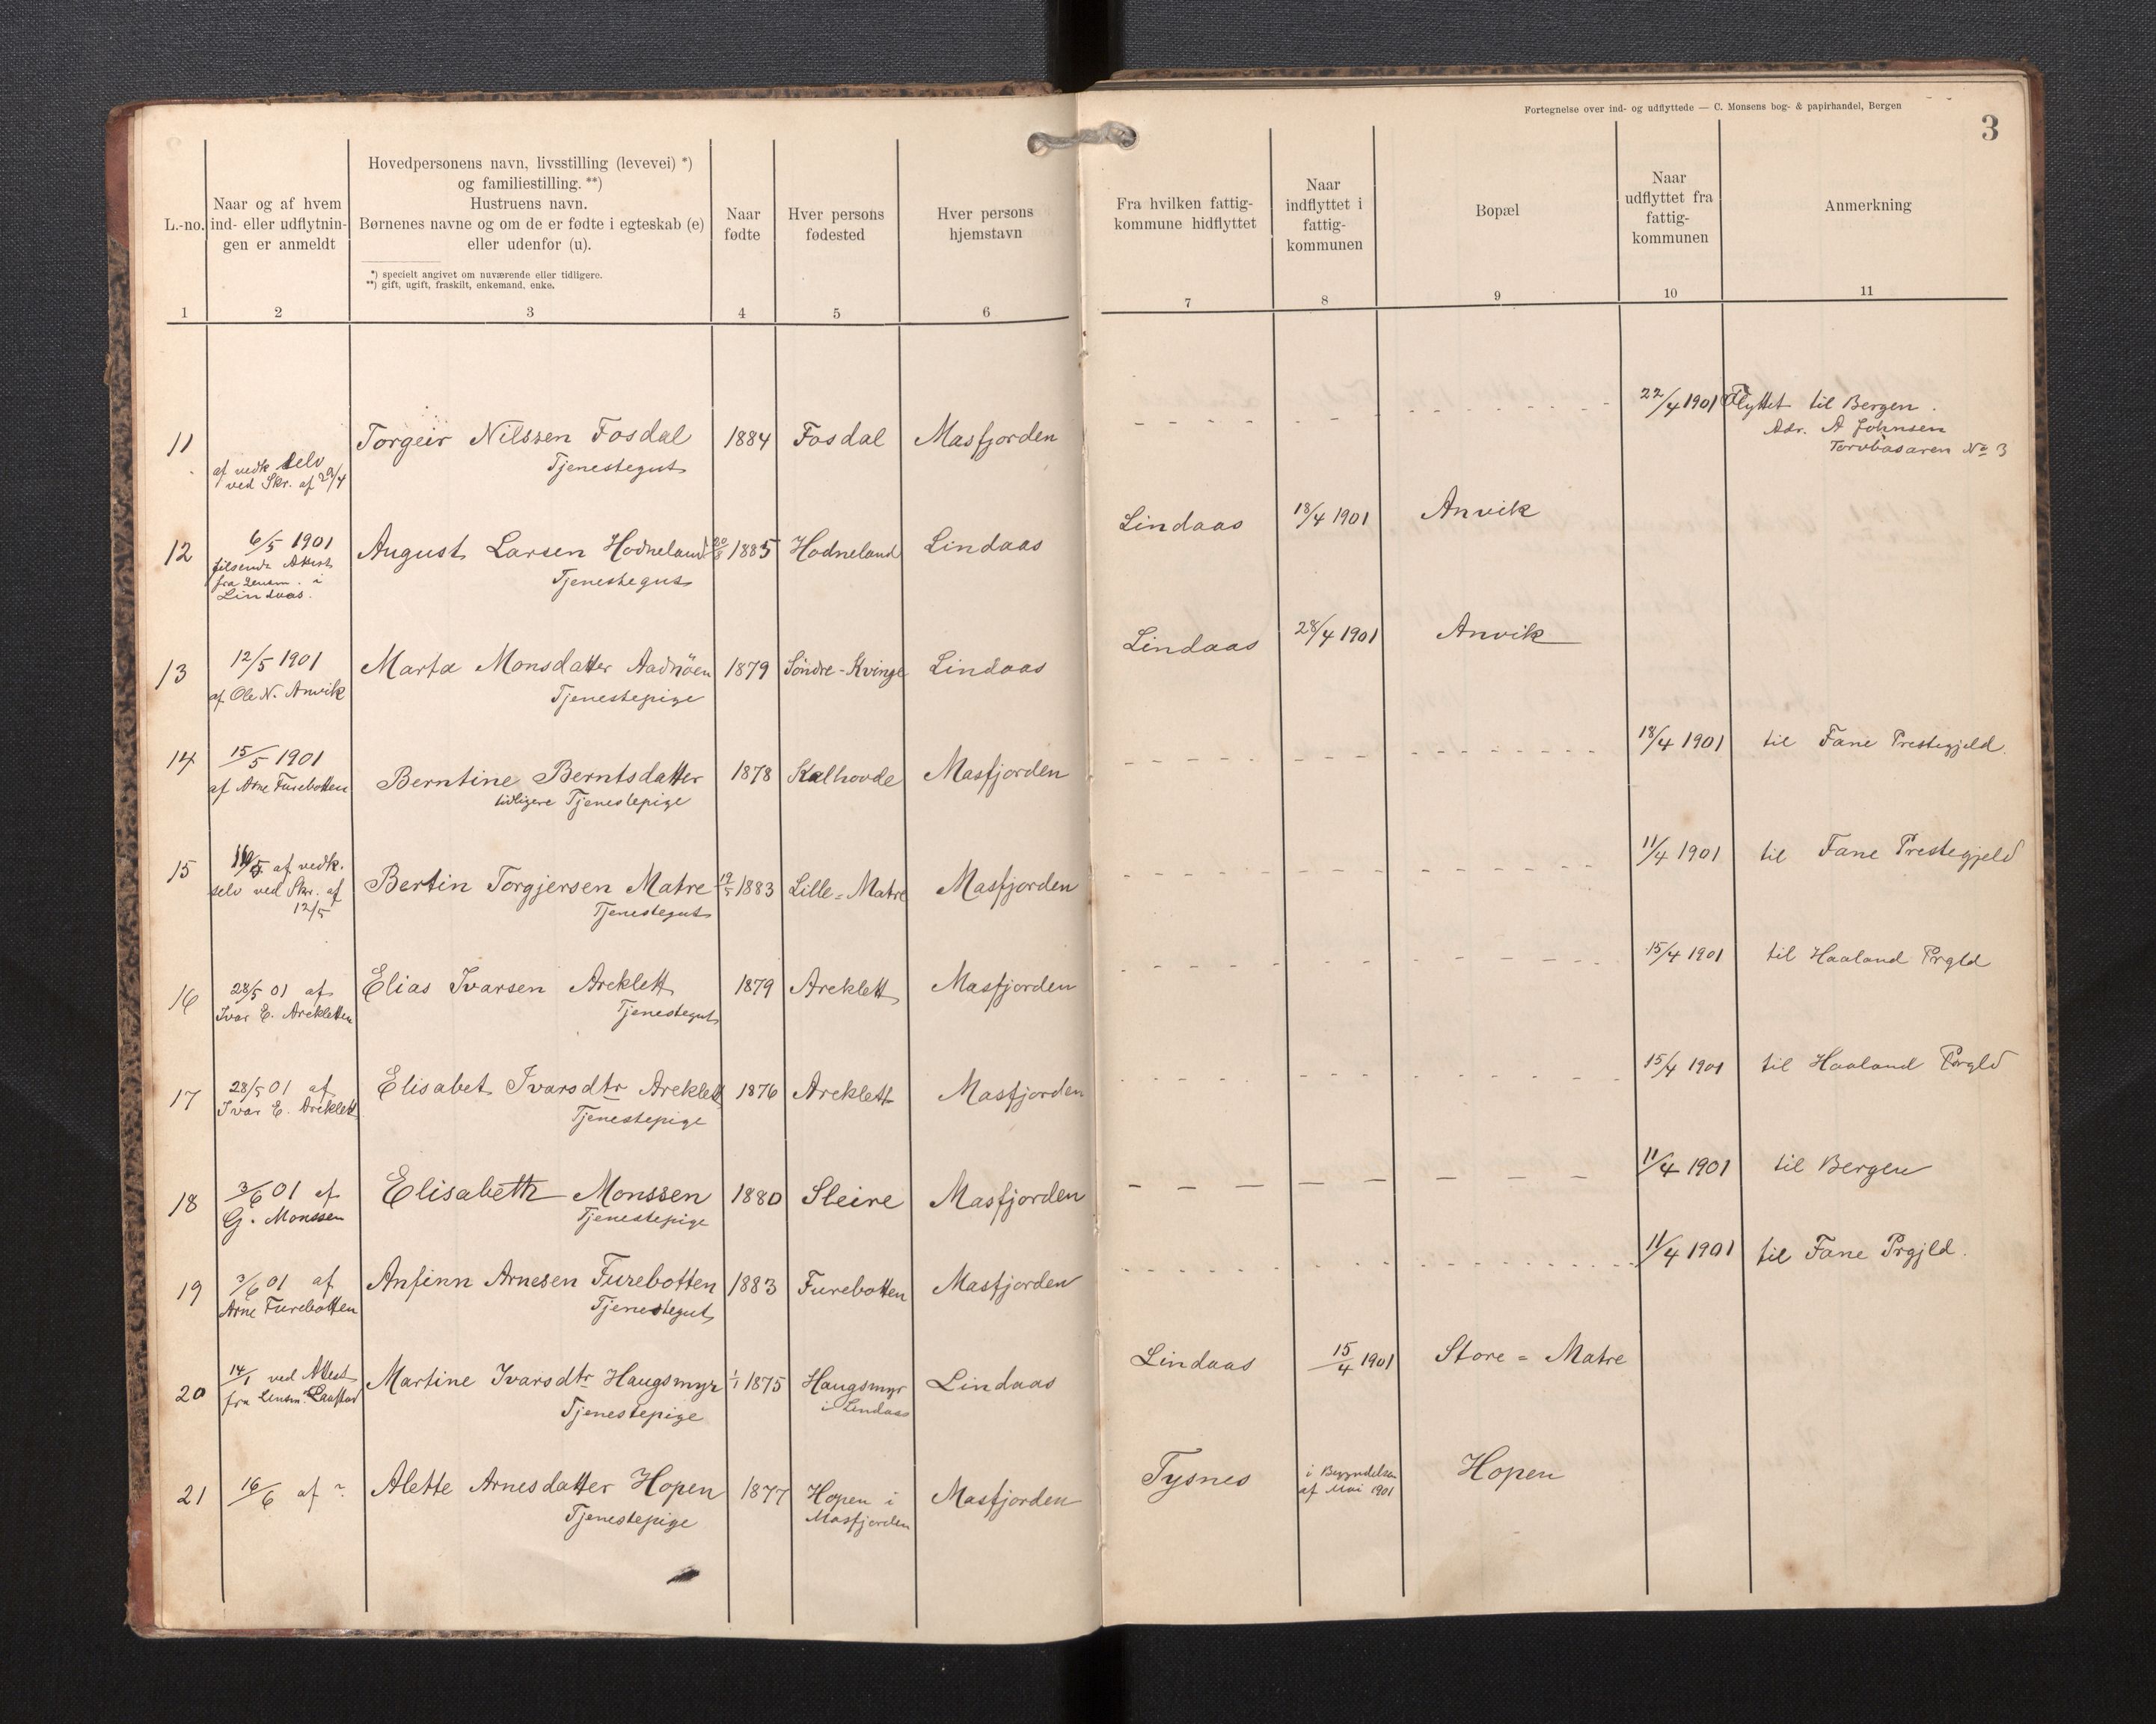 Fortegnelse over ind- og udflyttede — C. Monsens bog- & papirhandel, Bergen
3
L.-no.
Naar og af hvem
ind- eller udflytnin-
gen er anmeldt
Hovedpersonens navn, livsstilling (levevei) *)
og familiestilling. **)
Hustruens navn.
Børnenes navne og om de er fødte i egteskab (e)
eller udenfor (u).
*) specielt angivet om nuværende eller tidligere.
**) gift, ugift, fraskilt, enkemand, enke.
Naar
fødte
Hver persons
fødested
Hver persons
hjemstavn
Fra hvilken fattig-
kommune hidflyttet
Naar
indflyttet i
fattig-
kommunen
Bopæl
Naar
udflyttet fra
fattig-
kommunen
Anmerkning
1 2 3 4 5 6 7 8 9 10 11
11 Torgeir Nilssen Fosdal 1884 Fosdal Masfjorden 22/4 1901 Flyttet til Bergen.
Adr. A Johnsen
Torvbasaren No 3
af vedk selv
ved Skr. af 29/4
Tjenestegut
12 6/5 1901 August Larsen Hodneland 20/8 1885 Hodneland Lindaas Lindaas 18/4 1901 Anvik
tilsendt Attest
fra Lensm. i
Lindaas.
Tjenestegut
13 12/5 1901 Marta Monsdatter Aadnöen 1879 Söndre-Kvinge Lindaas Lindaas 28/4 1901 Anvik
af Ole N. Anvik
Tjenestepige
14 15/5 1901 Berntine Berntsdatter 1878 Kalhovde Masfjorden 18/4 1901 til Fane Prestegjeld.
af Arne Furebotten
tidligere Tjenestepige
15 af vedk. Bertin Torgjersen Matre 19/5 1883 Lille-Matre Masfjorden 11/4 1901 til Fane Prestegjeld
selv ved Skr. af
12/5
Tjenestegut
16 28/5 01 af Elias Ivarsen Areklett 1879 Areklett Masfjorden 15/4 1901 til Haaland Prgld
Ivar E. Arekletten
Tjenestegut
17 28/5 01 af Elisabet Ivarsdtr Areklett 1876 Areklett Masfjorden 15/4 1901 til Haaland Prgld
Ivar E. Areklett
Tjenestepige
18 3/6 01 af Elisabeth Monssen 1880 Sleire Masfjorden 11/4 1901 til Bergen
G. Monssen
Tjenestepige
19 3/6 01 af Anfinn Arnesen Furebotten 1883 Furebotten Masfjorden 11/4 1901 til Fane Prgjld.
Arne Furebotten
Tjenestegut
20 14/1 ved Attest Martine Ivarsdtr Haugsmyr 1/1 1875 Haugsmyr Lindaas Lindaas 15/4 1901 Store-Matre
fra Lensm.
i Lindaas
Tjenestepige
21 16/6 af ? Alette Arnesdatter Hopen 1877 Hopen i Masfjorden Tysnes i Begyndelsen Hopen
Masfjorden
af Mai 1901
Tjenestepige